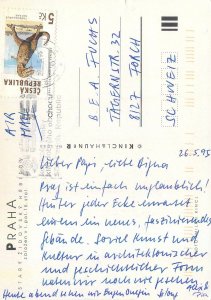 5 Kč
ČESKÁ
REPUBLIKA
AIR
MAIL
BEA FUCHS
TÄGERNSTR. 32
8127 FORCH
SCHWEIZ
© KINCL & HAUNER
PRAHA
26.5.95
Lieber Papi, liebe Bigna
Prag ist einfach unglaublich!
Hinter jeder Ecke erwartet
einem ein neues, faszinierendes
Gebäude. Soviel Kunst und
Kultur in architektonischer
und geschichtlicher Form
haben wir noch nie gesehen
Heute abend sehen wir